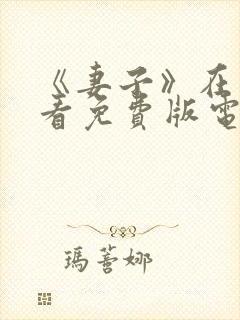 《妻子》在
看免費版電
瑪薔娜